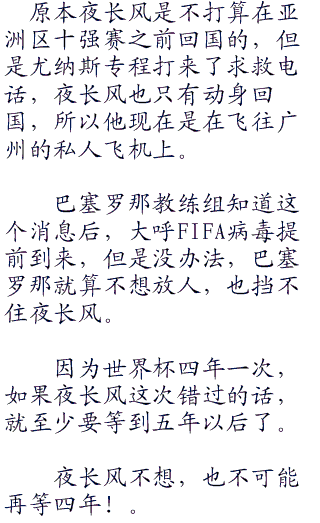 原本夜长风是不打算在亚
洲区十强赛之前回国的，但
是尤纳斯专程打来了求救电
话，夜长风也只有动身回
国，所以他现在是在飞往广
州的私人飞机上。
巴塞罗那教练组知道这
个消息后，大呼FIFA病毒提
前到来，但是没办法，巴塞
罗那就算不想放人，也挡不
住夜长风。
因为世界杯四年一次，
如果夜长风这次错过的话，
就至少要等到五年以后了。
夜长风不想，也不可能
再等四年！。